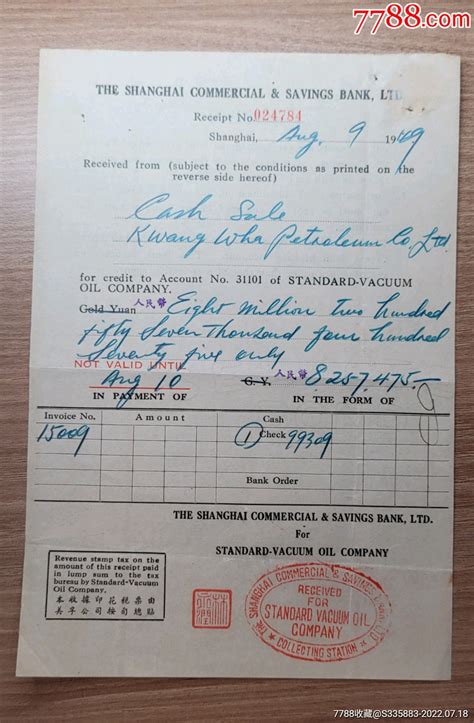 7788.com
THE SHANGHAI COMMERCIAL & SAVINGS BANK, LTD.
Receipt No. 024784
Shanghai, Aug. 9 1949
Received from (subject to the conditions as printed on the
reverse side hereof)
Cash Sale
Kwang Wha Petroleum Co. Ltd.
for credit to Account No. 31101 of STANDARD-VACUUM
OIL COMPANY.
人民幣
Gold Yuan Eight million two hundred
fifty seven thousand four hundred
seventy five only
NOT VALID UNTIL
Aug 10
G. Y. 人民幣 8257,475.—
IN PAYMENT OF IN THE FORM OF
Invoice No. Amount Cash
15009 ① Check 99309
Bank Order
THE SHANGHAI COMMERCIAL & SAVINGS BANK, LTD.
For
STANDARD-VACUUM OIL COMPANY
Revenue stamp tax on the
amount of this receipt paid
in lump sum to the tax
bureau by Standard-Vacuum
Oil Company.
本收據印花稅票由
美孚公司按旬總貼
THE SHANGHAI COMMERCIAL & SAVINGS BANK, LTD.
RECEIVED
FOR
STANDARD VACUUM OIL
COMPANY
COLLECTING STATION
7788收藏@S335883-2022.07.18